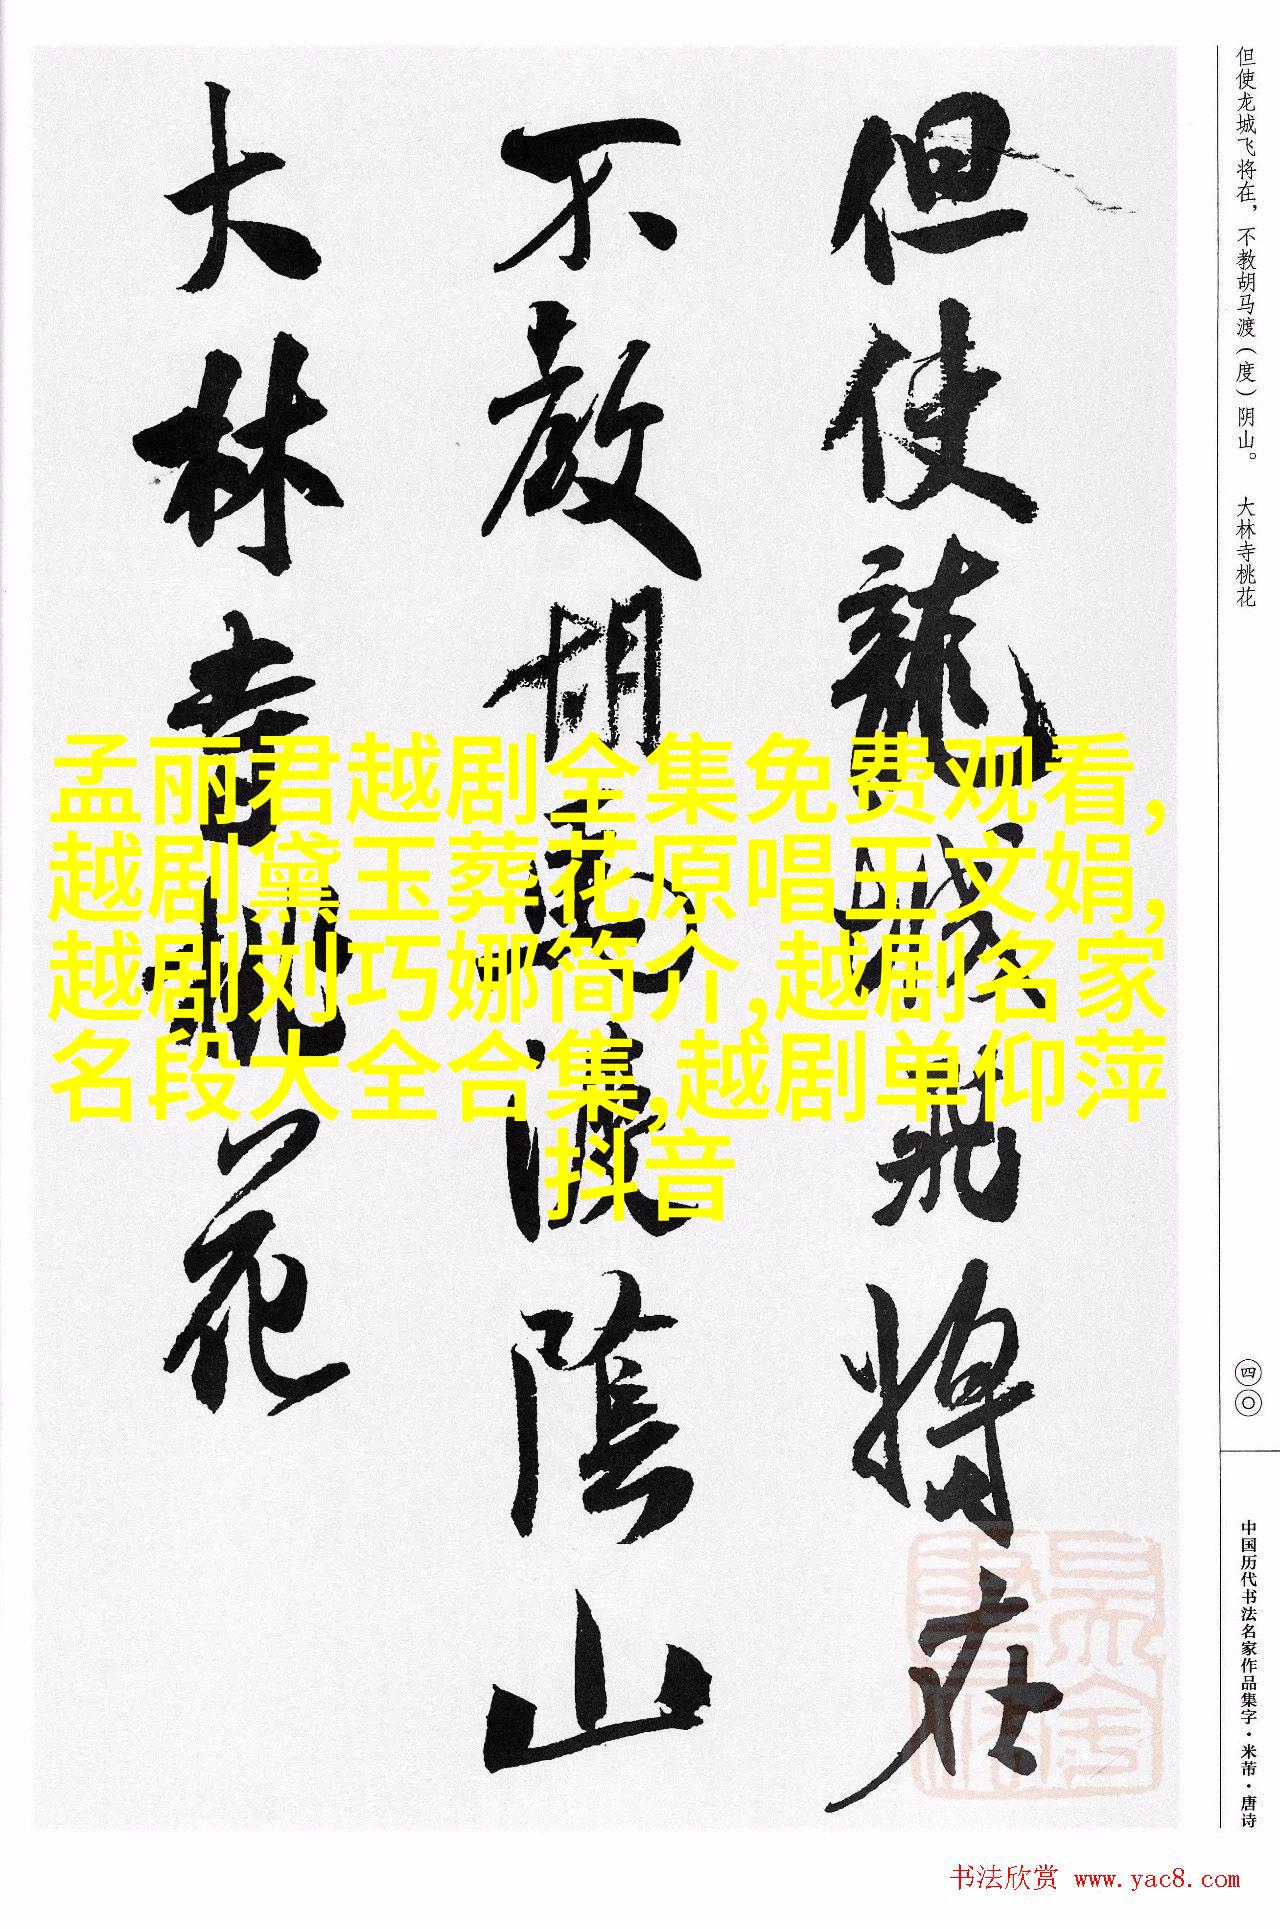 但使龙城飞将在，不教胡马渡（度）阴山。 大林寺桃花
但使龍城飛将在
不教胡馬渡陰山
大林寺桃花
孟丽君越剧全集免费观看,
越剧黛玉葬花原唱王文娟,
越剧刘巧娜简介,越剧名家
名段大全合集,越剧单仰萍
抖音
四〇
中国历代书法名家作品集字·米芾·唐诗
书法欣赏 www.yac8.com